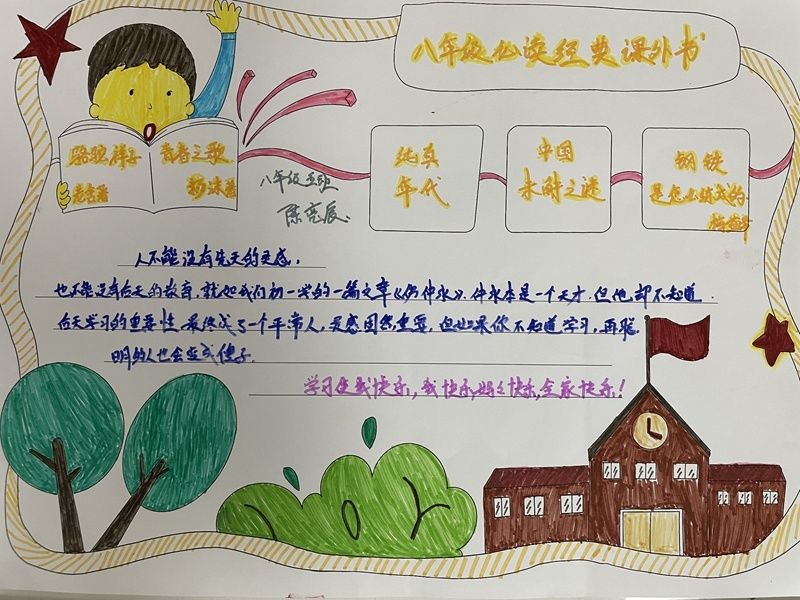 八年级必读经典课外书
骆驼祥子
老舍著
青春之歌
杨沫著
八年级五班
陈亮辰
纯真
年代
中国
未解之谜
钢铁
是怎么练成的
人不能没有先天的灵感，
也不能没有后天的教育，就如我们初一学的一篇文章《伤仲永》，仲永本是一个天才，但他却不知道
后天学习的重要性，最终成了一个平常人，灵感固然重要，但如果你不知道学习，再聪
明的人也会变成傻子。
学习使我快乐，我快乐，妈妈快乐，全家快乐！